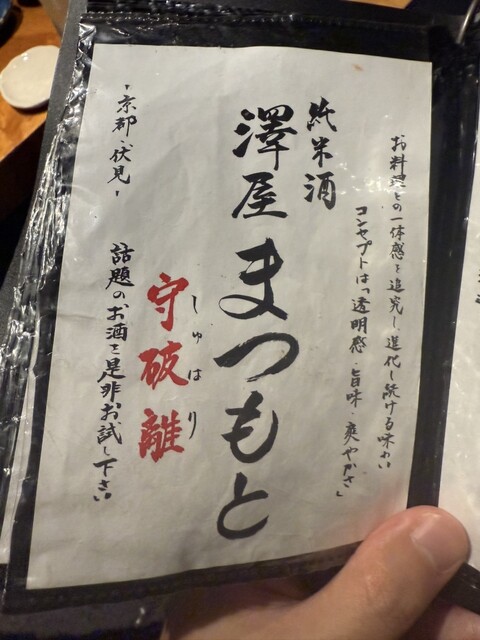 お料理との一体感を追究し、進化し続ける味わい
コンセプトは「透明感・旨味・爽やかさ」
純米酒
澤屋まつもと
守破離
しゅはり
話題のお酒を是非お試し下さい
・京都・伏見・